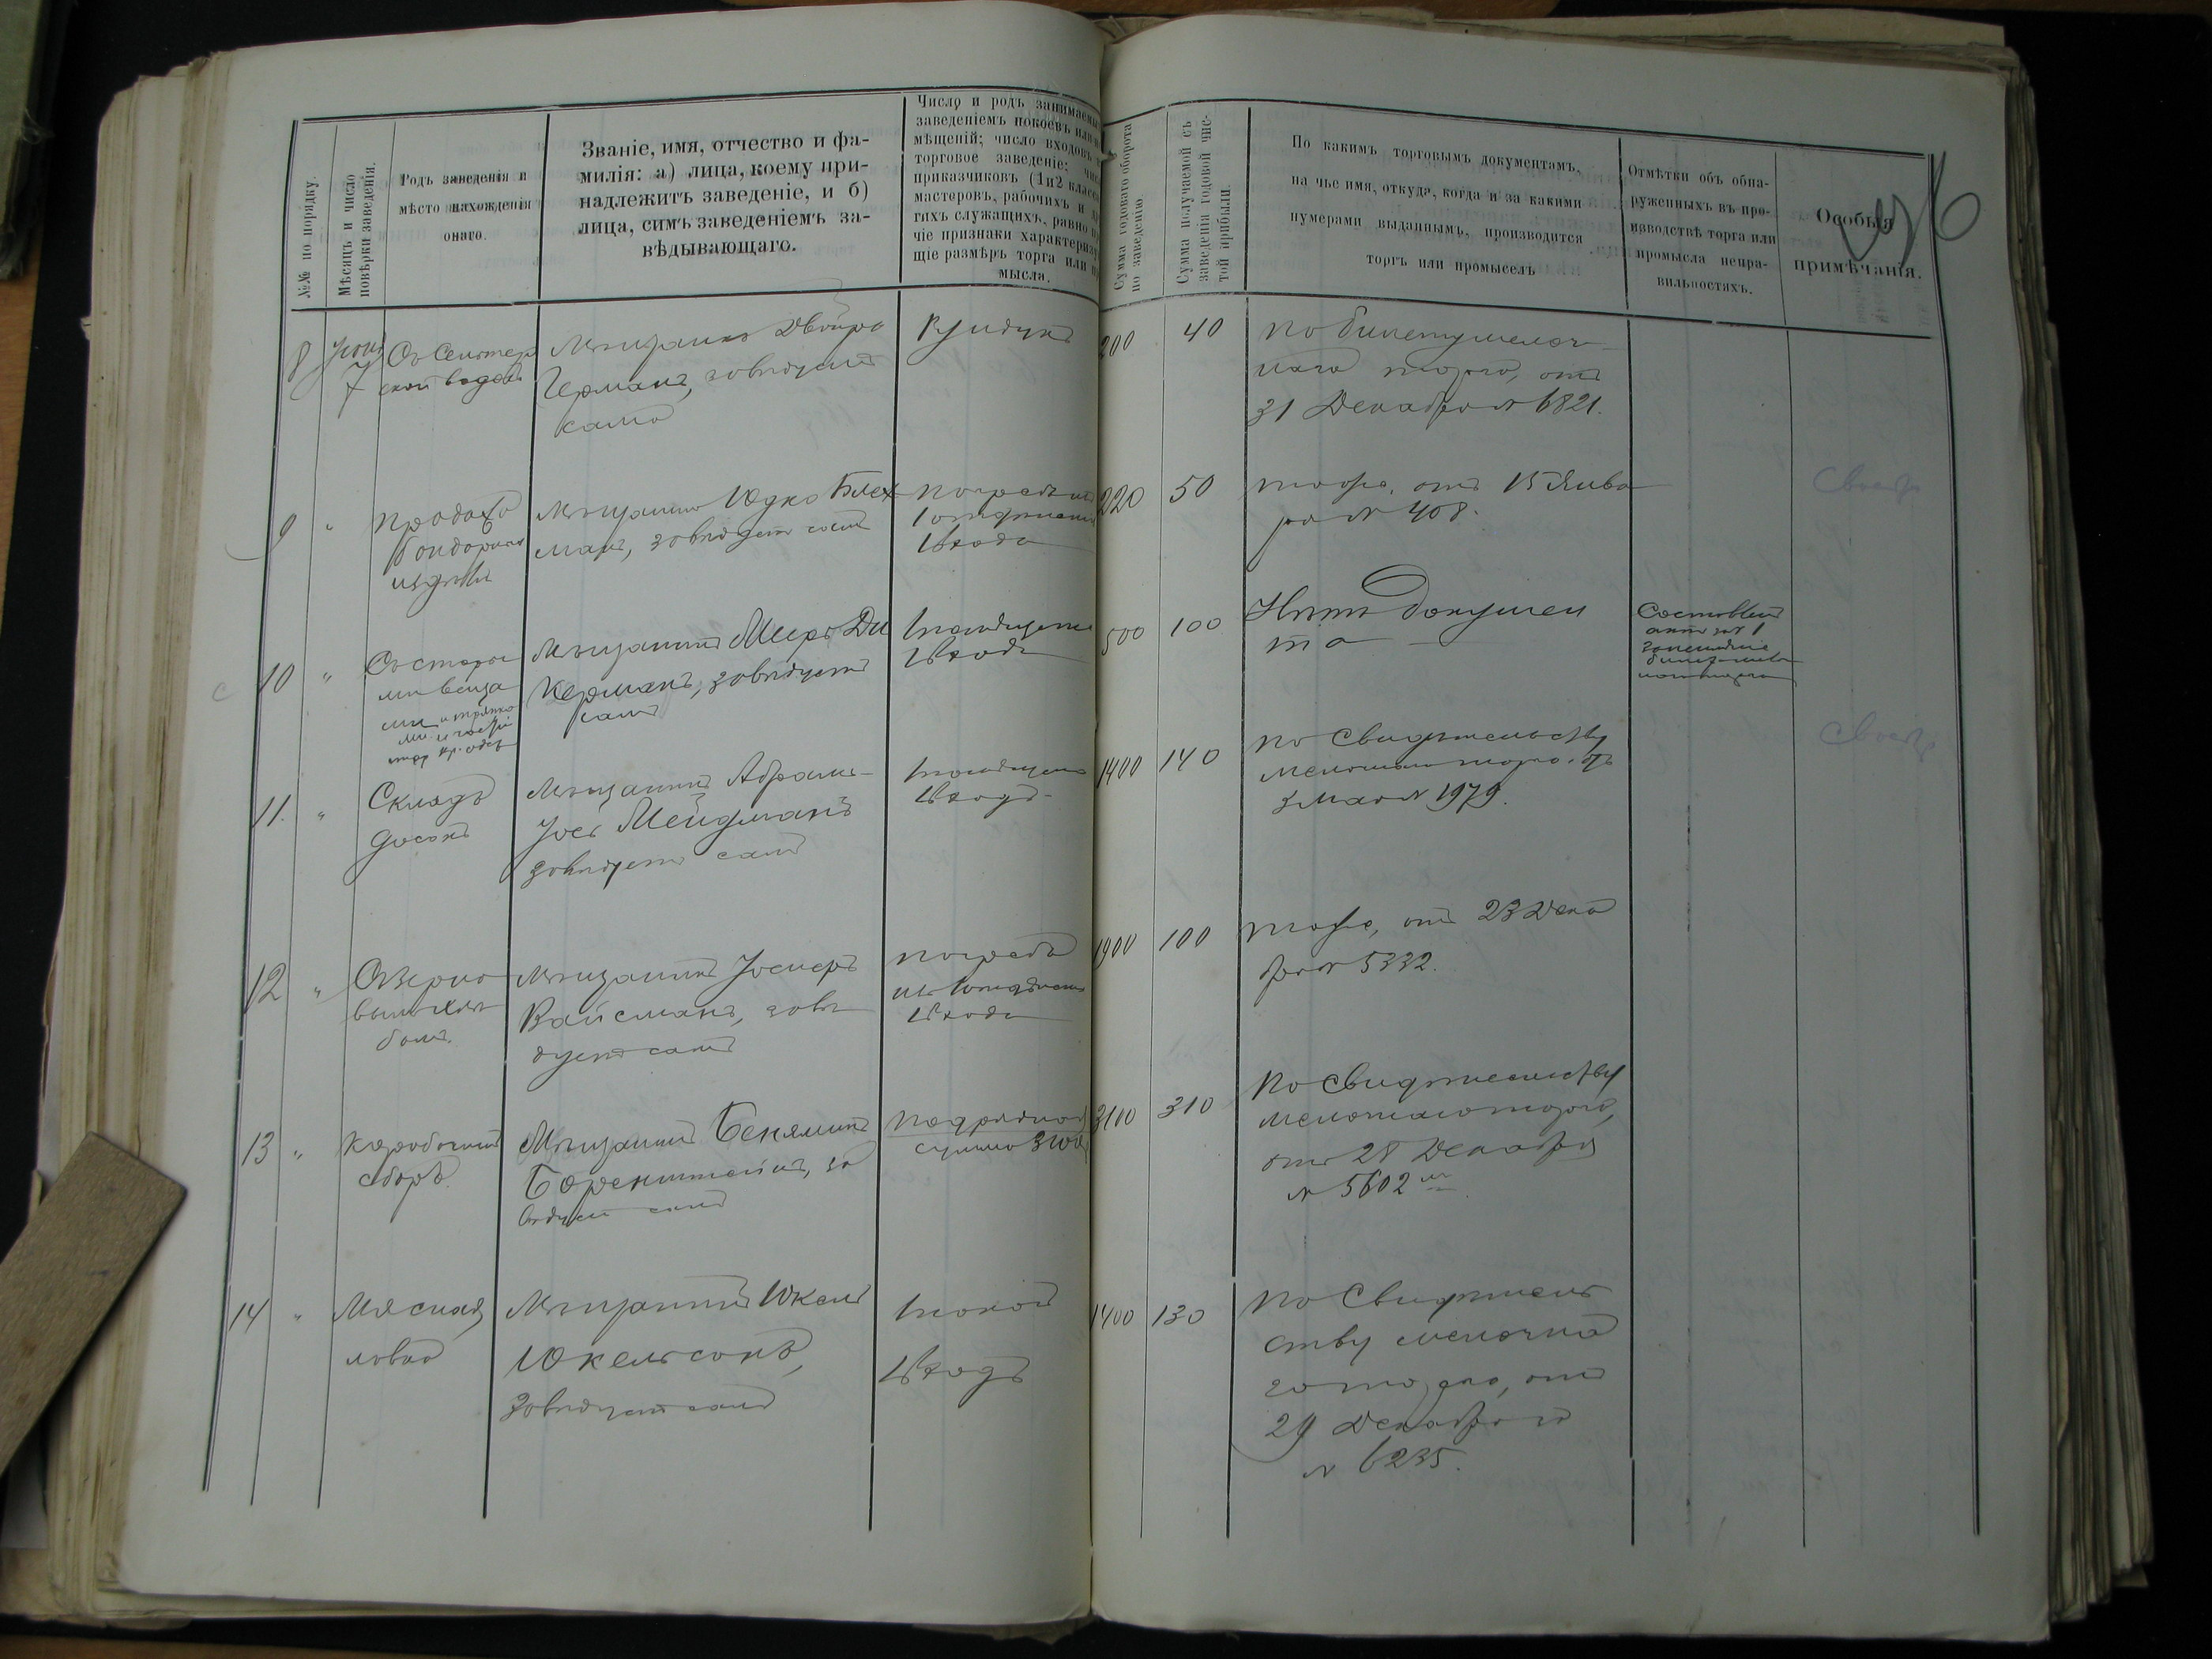 №№ по порядку.
Мѣсяцъ и число
повѣрки заведенія.
Родъ заведенія и
мѣсто нахожденія
онаго.
Званіе, имя, отчество и фа-
милія: а) лица, коему при-
надлежитъ заведеніе, и б)
лица, симъ заведеніемъ за-
вѣдывающаго.
Число и родъ занимаемы
заведеніемъ покоевъ или
мѣщеній; число входовъ
торговое заведеніе; чис
приказчиковъ (1 и 2 класс
мастеровъ, рабочихъ и
гихъ служащихъ, равно
чіе признаки характериз
щіе размѣръ торга или
мысла.
Сумма годоваго оборота
по заведенію.
Сумма получаемой съ
заведенія годовой чис-
той прибыли.
По какимъ торговымъ документамъ,
на чье имя, откуда, когда и за какими
нумерами выданнымъ, производится
торгъ или промыселъ
Отмѣтки объ обна-
руженныхъ въ про-
изводствѣ торга или
промысла непра-
вильностяхъ.
Особыя
примѣчанія.
8
Іюня
7
Съ Сельтер
ской водой
Мѣщанка Двойра
Германъ, завѣдуетъ
сама
200
40
По билету мелоч-
наго торга, отъ
31 Декабря № 6821.
9
"
Продажа
бондарныхъ
издѣлій
Мѣщанинъ Юдко Блех
манъ, завѣдуетъ самъ
Погребъ
1 входъ
220
50
тоже, отъ 15 Янва
ря № 408.
10
"
Съ стары
ми веща
ми
Мѣщанинъ Мееръ Ди
керманъ, завѣдуетъ
самъ
1 помѣщеніе
1 входъ
500
100
Нѣтъ докумен
та
Составленъ
актъ за № 1
11.
"
Складъ
досокъ
Мѣщанинъ Абрамъ-
Іось Мейдманъ
завѣдуетъ самъ
1 помѣщеніе
1 входъ
1400
140
По Свидѣтельству
мелочнаго торга, отъ
3 Мая № 1979.
12
"
Мѣщанинъ Іосперъ
Вайсманъ, завѣ
дуетъ самъ
погребъ
1 входъ
1900
100
тоже, отъ 23 Дека
бря № 5332.
13
"
Коробочный
сборъ.
Мѣщанинъ Бенямин
Боренштейнъ, за
вѣдуетъ самъ
Подрядная
сумма 3100
3100
310
По Свидѣтельству
мелочнаго торга,
отъ 28 Декабря
№ 5602
14
"
Мясная
лавка
Мѣщанинъ Юкель
Юкельсонъ,
завѣдуетъ самъ
1 покой
1 входъ
1400
130
По Свидѣтель
ству мелочна
го торга, отъ
29 Декабря
№ 6235.